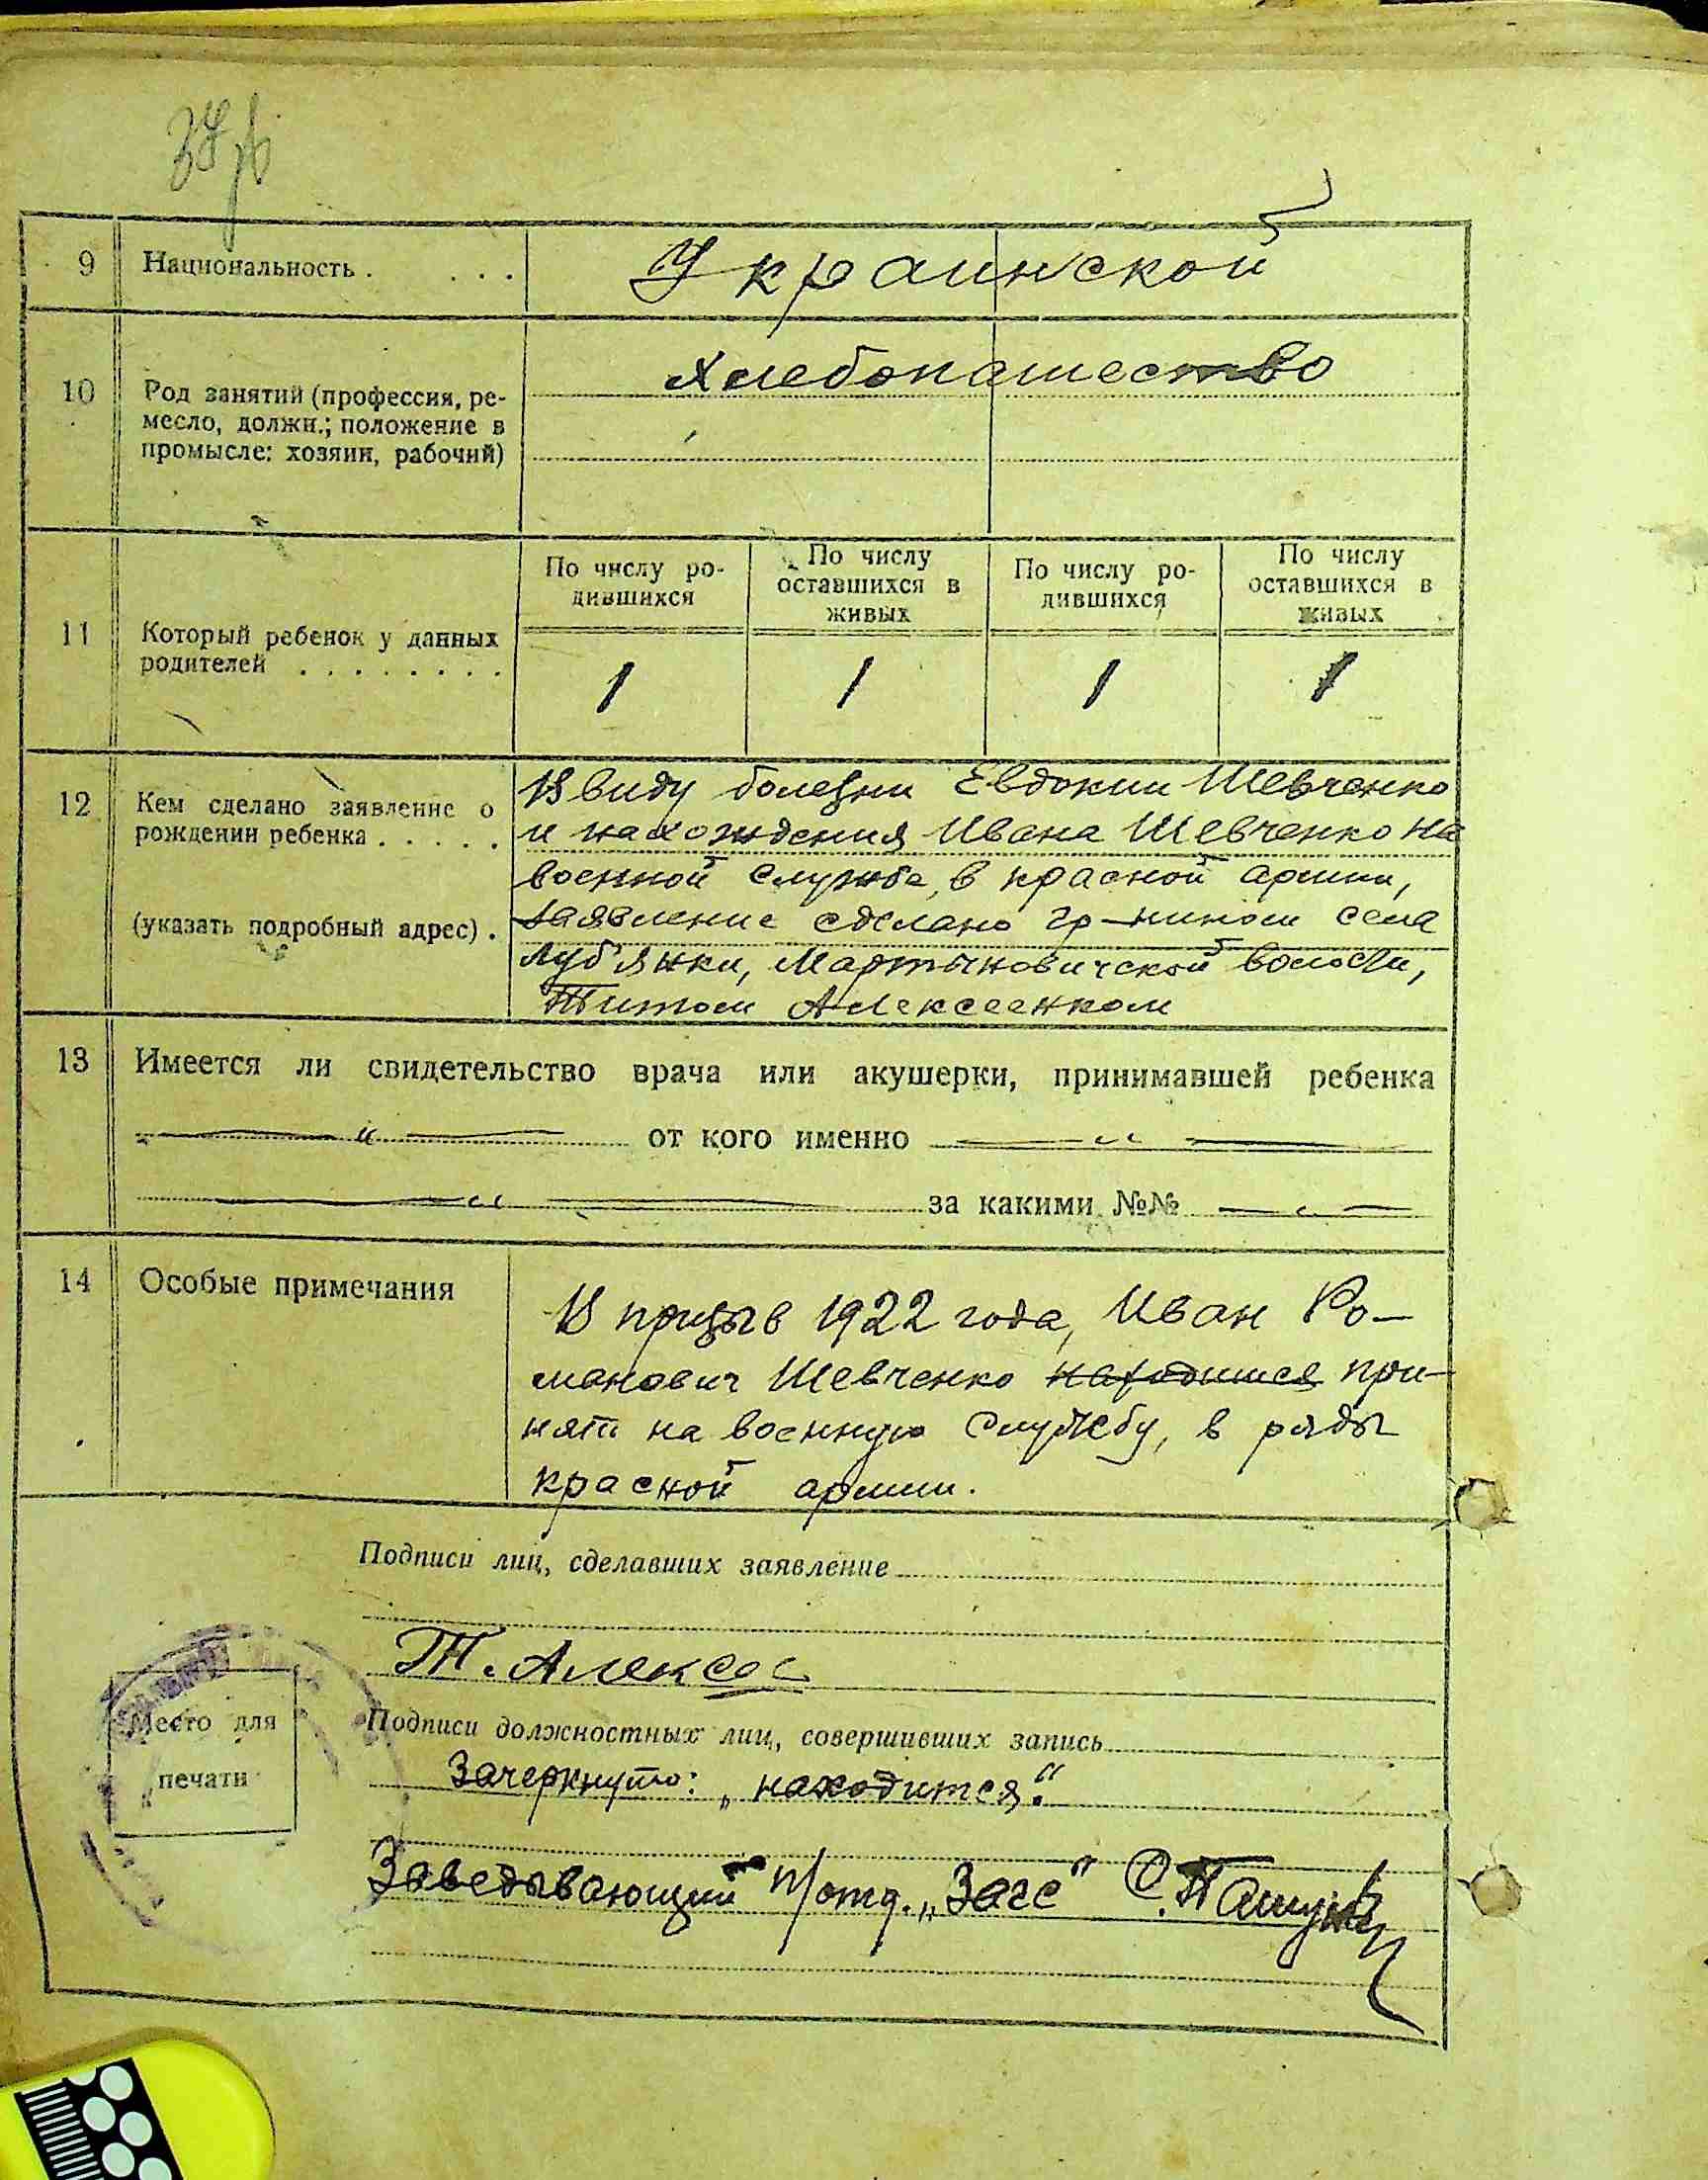 9 Национальность . . . . Украинской
10 Род занятий (профессия, ре-
месло, должн.; положение в
промысле: хозяин, рабочий)
Хлебопашество
11 Который ребенок у данных
родителей . . . . . . . .
По числу ро-
дившихся
По числу
оставшихся в
живых
По числу ро-
дившихся
По числу
оставшихся в
живых
1 1 1 1
12 Кем сделано заявление о
рождении ребенка . . . . .
(указать подробный адрес) .
Ввиду болезни Евдокии Шевченко
и нахождения Ивана Шевченко на
военной службе, в красной армии,
заявление сделано гр-нином села
Луб'янки, Мартыновичской волости,
Титом Алексеенком
13 Имеется ли свидетельство врача или акушерки, принимавшей ребенка
— " — от кого именно — " —
— " — за какими №№ — " —
14 Особые примечания
В призыв 1922 года, Иван Ро-
манович Шевченко находится при-
нят на военную службу, в ряды
красной армии.
Подписи лиц, сделавших заявление
Т. Алексее
Подписи должностных лиц, совершивших запись
Зачеркнуто: „находится".
Место для
печати
Заведывающий п/отд. „Загс"